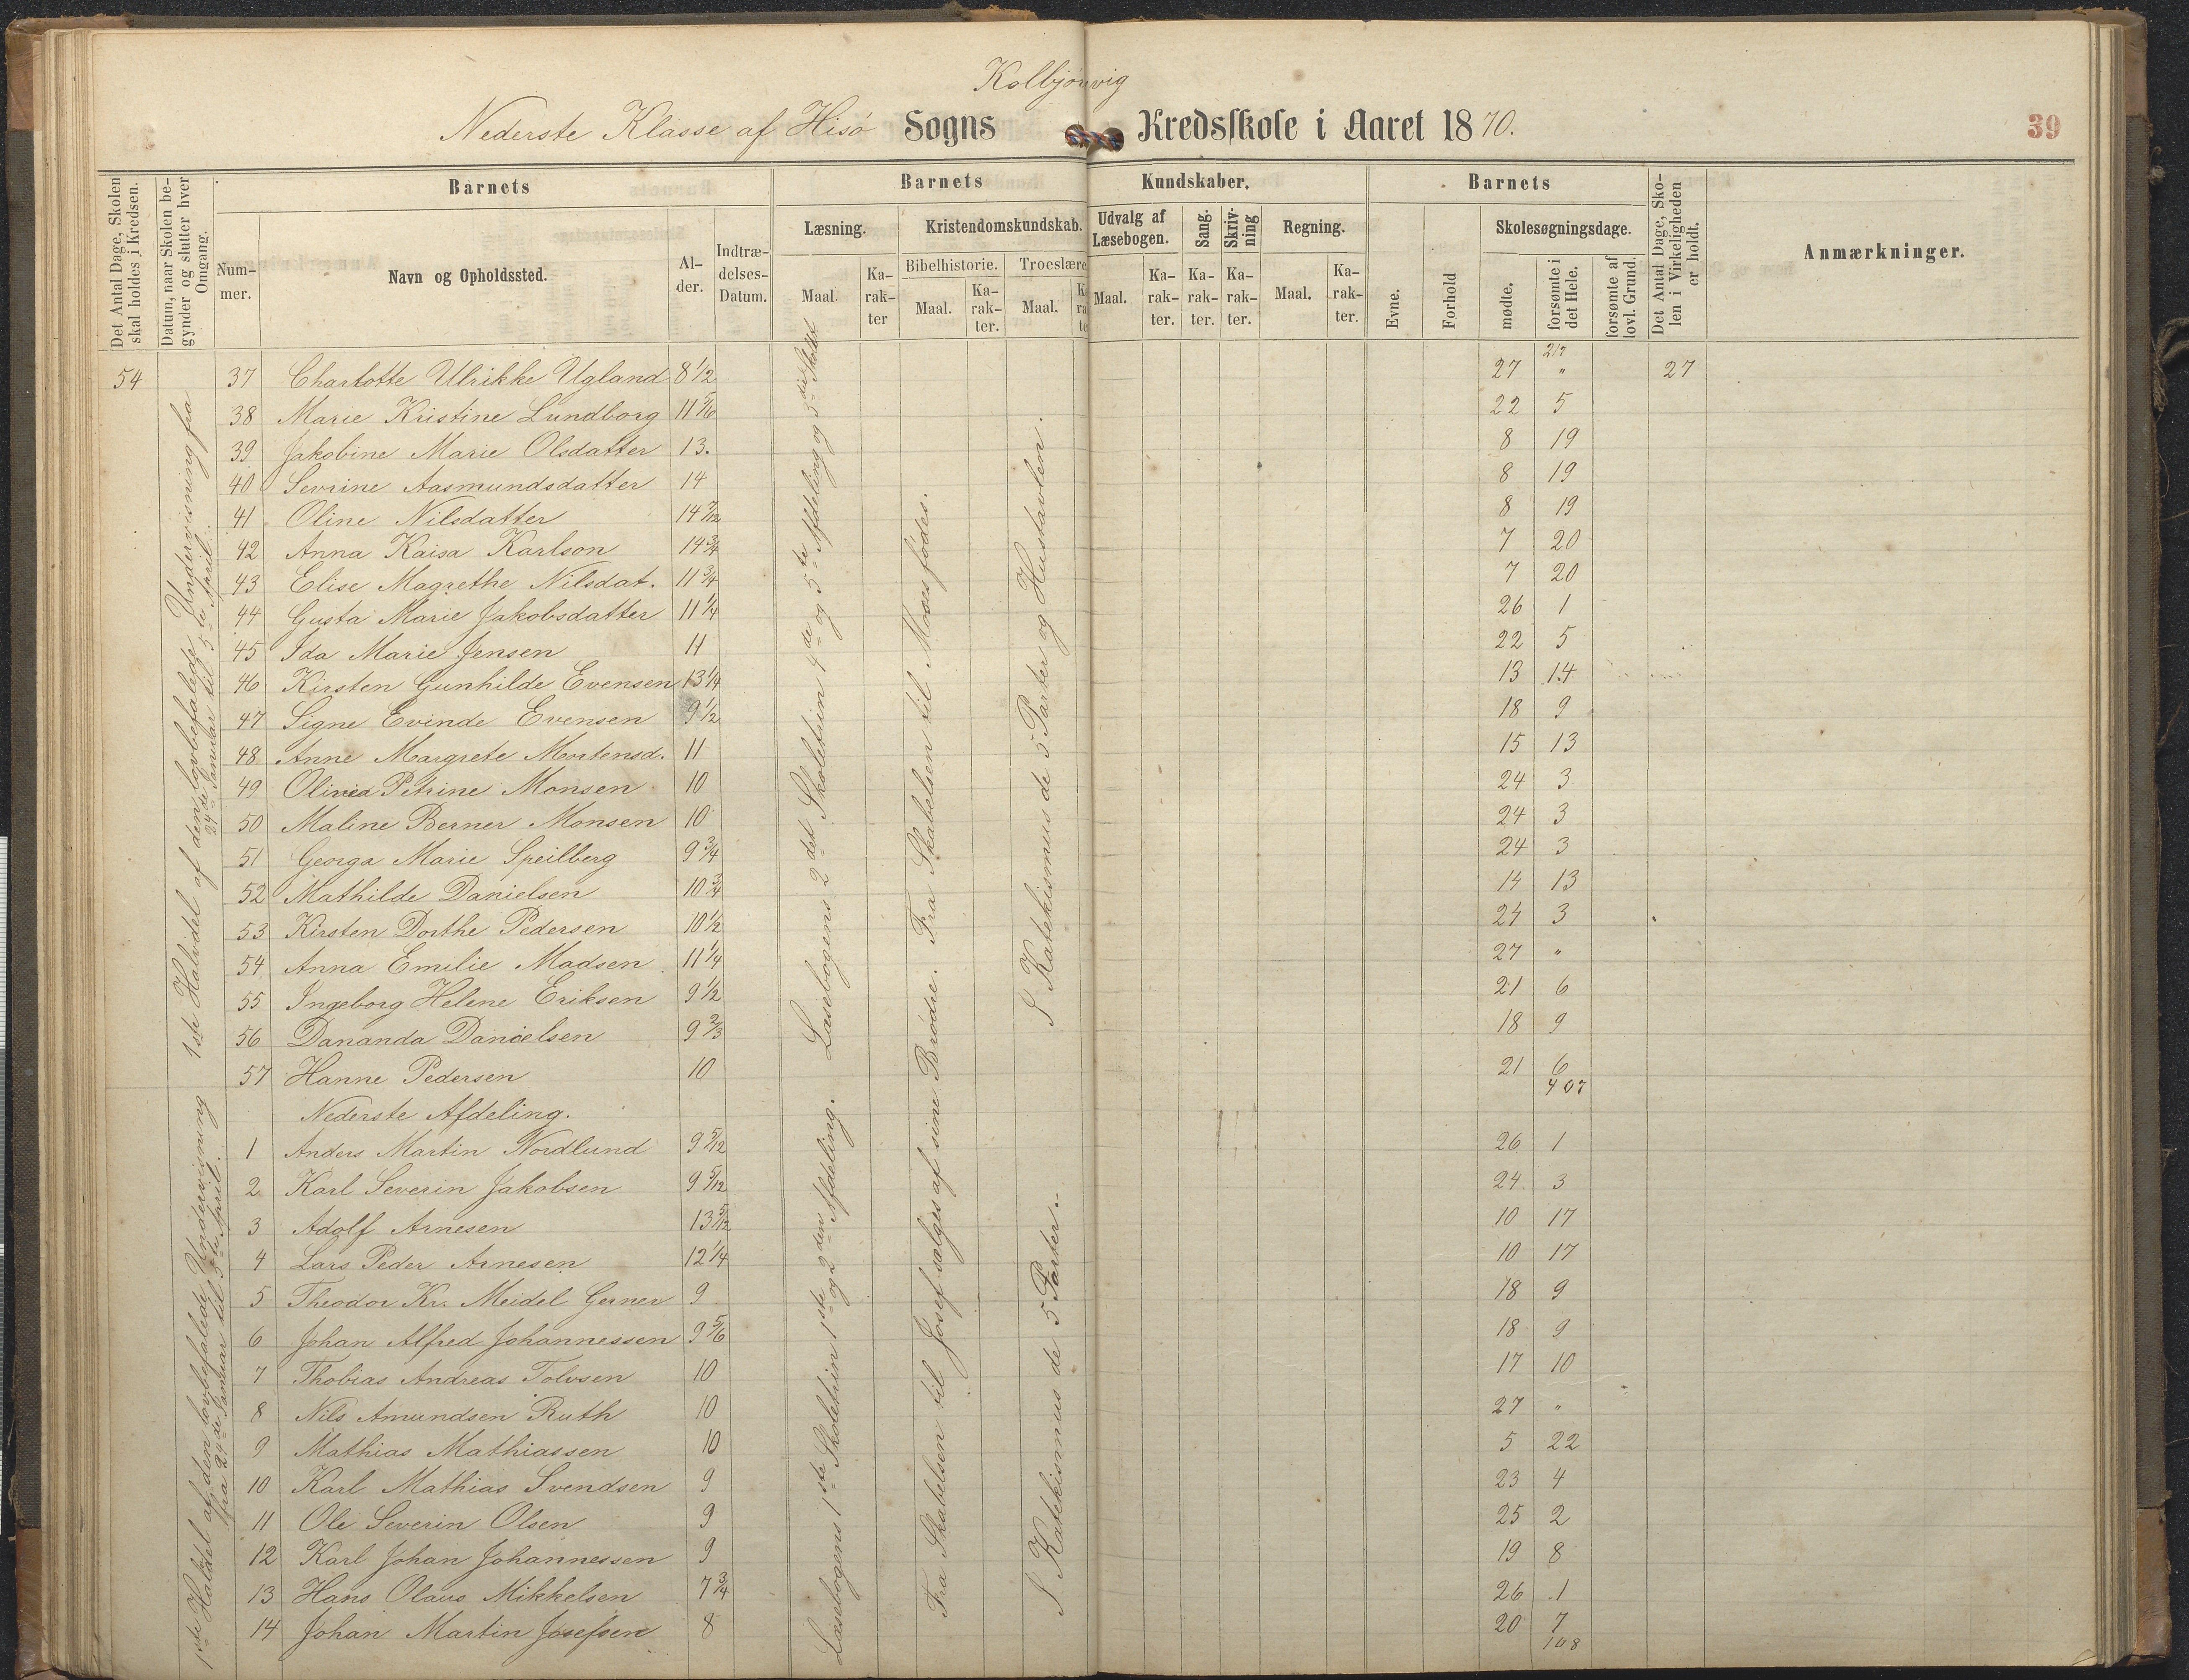 Kolbjørnvig
Nederste Klasse af Hisø Sogns Kredsskole i Aaret 1870.
39
Det Antal Dage, Skolen skal holdes i Kredsen.
Datum, naar Skolen begynder og slutter hver Omgang.
Barnets
Nummer.
Navn og Opholdssted.
Alder.
Indtrædelses-Datum.
Barnets Kundskaber.
Læsning.
Maal.
Karakter
Kristendomskundskab.
Bibelhistorie.
Maal.
Karakter.
Troeslære
Maal.
Udvalg af Læsebogen.
Maal.
Karakter.
Sang.
Karakter.
Skrivning
Karakter.
Regning.
Maal.
Karakter.
Barnets
Evne.
Forhold
Skolesøgningsdage.
mødte.
forsømte i det Hele.
forsømte af lovl. Grund.
Det Antal Dage, Skolen i Virkeligheden er holdt.
Anmærkninger.
217
54 37 Charlotte Ulrikke Ugland 8 1/2 27 " 27
38 Marie Kristine Lundborg 11 5/6 22 5
39 Jakobine Marie Olsdatter 13. 8 19
40 Sevrine Aasmundsdatter 14 8 19
41 Oline Nilsdatter 14 7/12 8 19
42 Anna Kaisa Karlson 14 3/4 7 20
43 Elise Magrethe Nilsdat. 11 3/4 7 20
44 Gusta Marie Jakobsdatter 11 1/4 26 1
45 Ida Marie Jensen 11 22 5
46 Kirsten Gunhilde Evensen 13 1/4 13 14
47 Signe Evinde Evensen 9 1/2 18 9
48 Anne Margrete Mortensd. 11 15 13
49 Olivea Petrine Monsen 10 24 3
50 Maline Berner Monsen 10 24 3
51 Georga Marie Speilberg 9 3/4 24 3
52 Mathilde Danielsen 10 3/4 14 13
53 Kirsten Dorthe Pedersen 10 1/2 24 3
54 Anna Emilie Madsen 11 1/4 27 "
55 Ingeborg Helene Eriksen 9 1/2 21 6
56 Dananda Danielsen 9 2/3 18 9
57 Hanne Pedersen 10 21 6
407
Nederste Afdeling.
1 Anders Martin Nordlund 9 5/12 26 1
2 Karl Severin Jakobsen 9 5/12 24 3
3 Adolf Arnesen 13 5/12 10 17
4 Lars Peder Arnesen 12 1/4 10 17
5 Theodor Kr. Meidel Gerner 9 18 9
6 Johan Alfred Johannessen 9 5/6 18 9
7 Thobias Andreas Tolvsen 10 17 10
8 Nils Amundsen Ruth 10 27 "
9 Mathias Mathiassen 10 5 22
10 Karl Mathias Svendsen 9 23 4
11 Ole Severin Olsen 9 25 2
12 Karl Johan Johannessen 9 19 8
13 Hans Olaus Mikkelsen 7 3/4 26 1
14 Johan Martin Josefsen 8 20 7
108
1ste Halvdel af den lovbefalede Undervisning fra
24de Januar til 5te April.
1ste Haldel af den lovbefalede Undervisning
fra 24de Januar til 5te April.
Læsebogens 2det Skoletrin 4de og 5te Afdeling og 3die Skolet.
Fra Skabelsen til Moses fødes.
I Katekismus de 5 Parter og Hustavlen.
Læsebogens 1ste Skoletrin 1ste og 2den Afdeling.
Fra Skabelsen til Josef sælges af sine Brødre.
I Katekismus de 5 Parter.